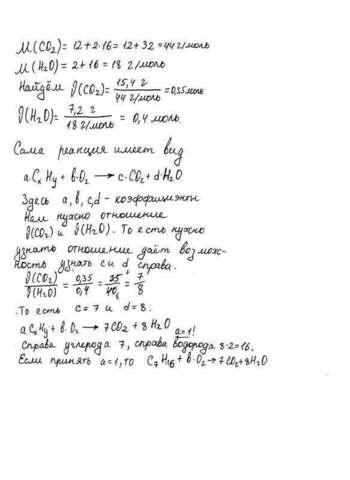 M(CO₂) = 12 + 2·16 = 12 + 32 = 44 г/моль
M(H₂O) = 2 + 16 = 18 г/моль
Найдём ϑ(CO₂) = 15,4 г / 44 г/моль = 0,35 моль
ϑ(H₂O) = 7,2 г / 18 г/моль = 0,4 моль.
Сама реакция имеет вид
a·CₓHy + b·O₂ → c·CO₂ + d·H₂O
Здесь a, b, c, d – коэффициэнты
Нам нужно отношение
ϑ(CO₂) и ϑ(H₂O). То есть нужно
узнать отношение даёт возмож-
ность узнать c и d справа.
ϑ(CO₂) / ϑ(H₂O) = 0,35 / 0,4 = 35 / 40 = 7 / 8
То есть c = 7 и d = 8.
a CₓHy + b·O₂ → 7CO₂ + 8H₂O a=1!
Справа углерода 7, справа водорода 8·2=16.
Если принять a=1, то C₇H₁₆ + b·O₂ → 7CO₂+8H₂O